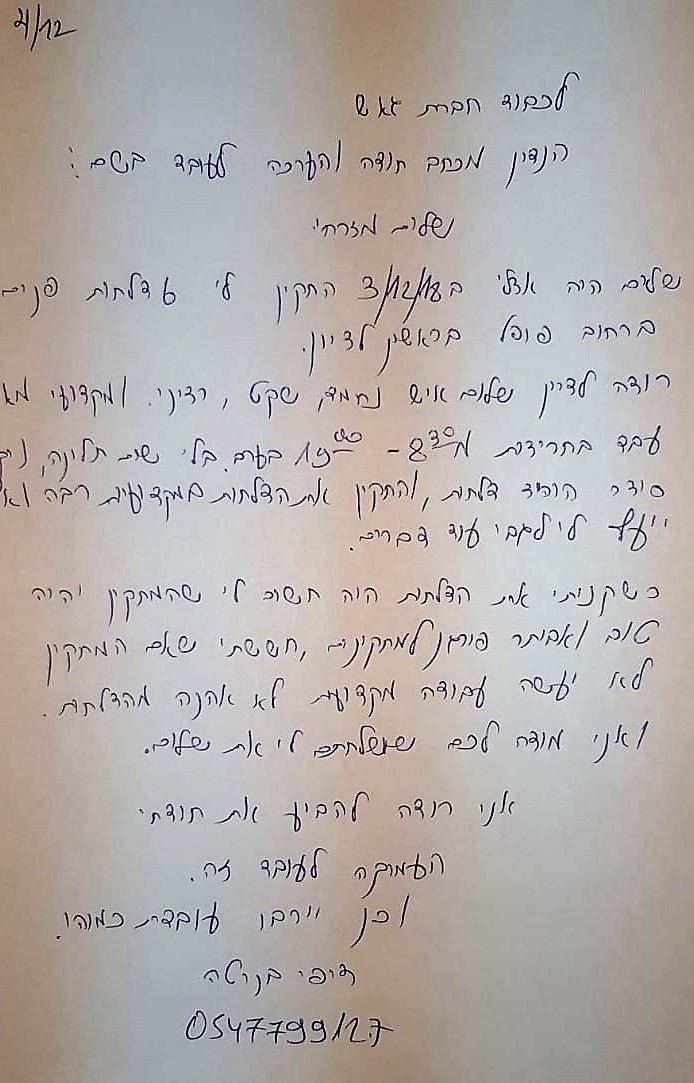 4/12
לכבוד חברת
הנדין מכתב תודה והערכה לעובד בשם:
שלום מזרחי
שלום היה אצלי ב 3/12/18 התקין לי 6 דלתות פנים
ברחוב פופל בראשון לציון.
רוצה לציין שלום איש נחמד, שקט, רציני. ומקצועי
עבד בחריצות מ 8:30 - בערב. בלי שום תלונה,
מסודר הוריד דלתות, והתקין את הדלתות במקצועיות רבה
ייעץ לי לגבי עוד דברים.
כשקניתי את הדלתות היה חשוב לי שהמתקין יהיה
טוב ואביתר פירגן למתקינים, חששתי שאם המתקין
לא יעשה עבודה מקצועית לא אהנה מהדלתות.
ואני מודה לכם ששלחתם לי את שלום.
אני רוצה להביע את תודתי
העמוקה לעובד זה.
וכן יירבו עובדים כמוהו.
ציפי
0547799127